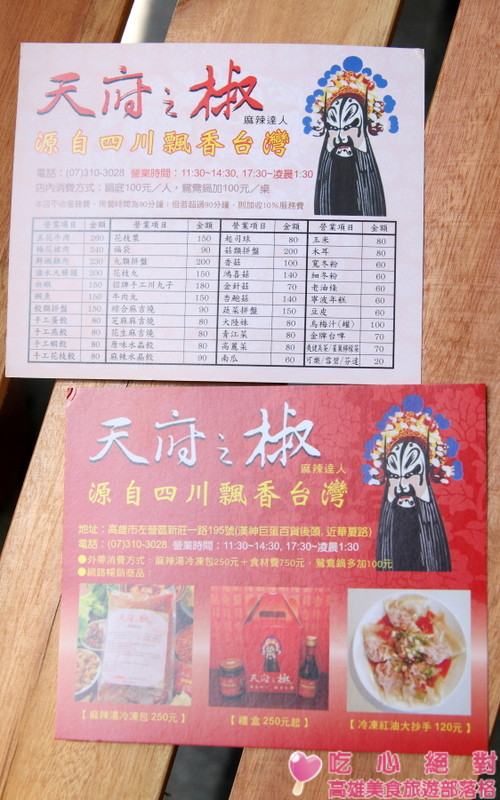 天府之椒
麻辣達人
源自四川飄香台灣
電話:(07)310-3028 營業時間:11:30~14:30, 17:30~凌晨1:30
店內消費方式:鍋底100元/人,鴛鴦鍋加100元/桌
本店不收服務費、用餐時間為90分鐘;但若超過90分鐘、則加收10%服務費
營業項目 金額 營業項目 金額 營業項目 金額 營業項目 金額
五花牛肉 260 花枝漿 150 起司球 80 玉米 80
梅花豬肉 240 福袋 90 菇類拼盤 200 木耳 80
鮮嫩雞肉 230 丸類拼盤 200 香菇 100 寬冬粉 60
150 花枝丸 150 鴻喜菇 140 細冬粉 60
白蝦 150 招牌手工川丸子 180 金針菇 70 老油條 60
鯛魚 150 牛肉丸 150 杏鮑菇 140 寧波年糕 60
餃類拼盤 150 綜合麻吉燒 90 蔬菜拼盤 150 豆皮 60
手工蛋餃 80 芝麻麻吉燒 80 大陸妹 80 烏梅汁(罐) 100
手工燕餃 80 花生麻吉燒 80 青江菜 80 金牌台啤 70
手工蝦餃 80 原味水晶餃 80 高麗菜 80 70
手工花枝餃 80 麻辣水晶餃 90 南瓜 60 可樂/雪碧/芬達 20
天府之椒
麻辣達人
源自四川飄香台灣
地址:高雄市左營區新莊一路195號(漢神巨蛋百貨後頭, 近華夏路)
電話:(07)310-3028 營業時間:11:30~14:30, 17:30~凌晨1:30
●外帶消費方式:麻辣湯冷凍包250元+食材費750元,鴛鴦鍋多加100元
●網路暢銷商品:
天府之椒
天府之椒
【麻辣湯冷凍包 250元】 【禮盒 250元起】 【冷凍紅油大抄手 120元】
吃心絕對
高雄美食旅遊部落格